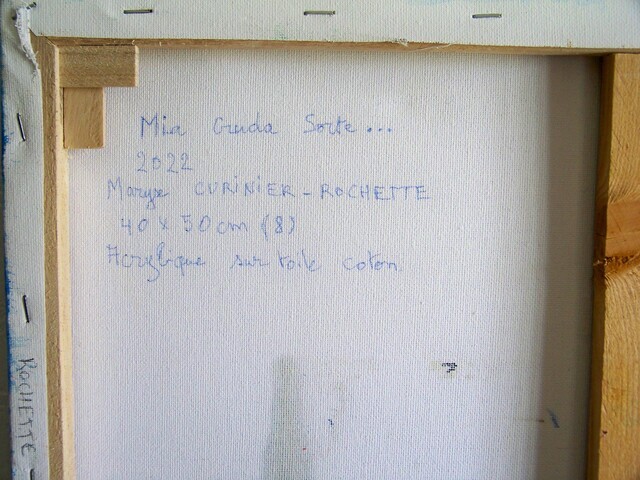 Mia Cruda Sorte...
2022
Maryse CURINIER-ROCHETTE
40 x 50 cm (8)
Acrylique sur toile coton
ROCHETTE